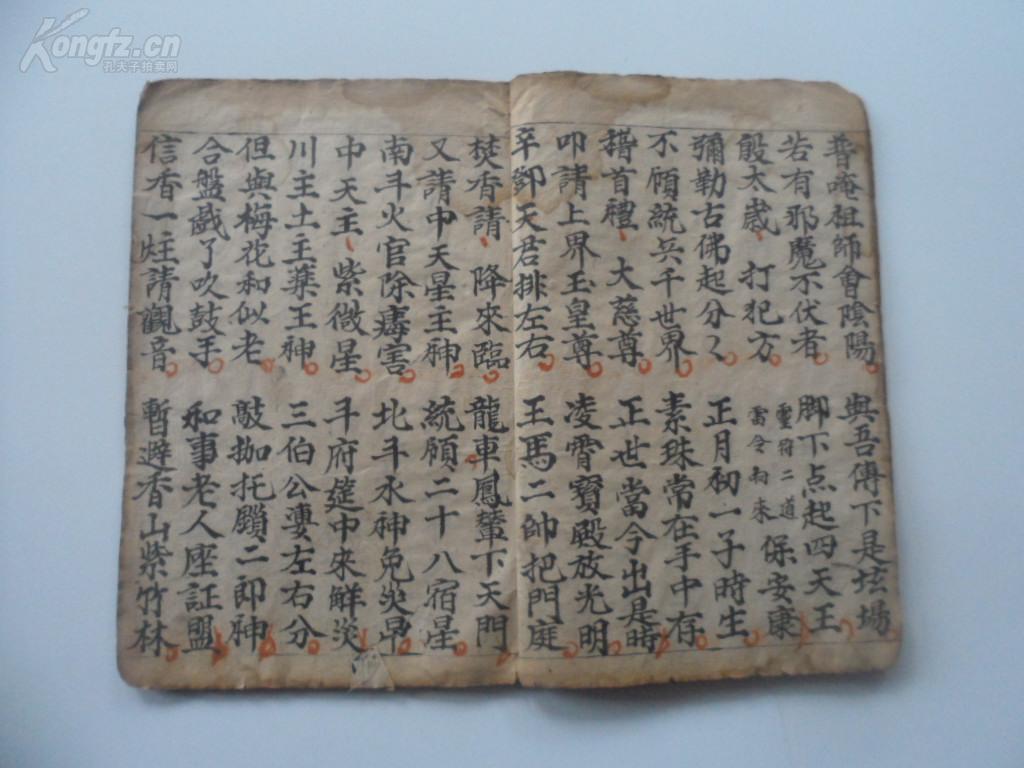 Kongfz.cn
孔夫子拍卖网
普唵祖師會陰陽 與吾傳下是坛場
若有邪魔不伏者 脚下点起四天王
殷太歲 打犯方 靈符二道 雷令 保安康
彌勒古佛起分〻 正月初一子時生
不顧統兵千世界 素珠常在手中存
稽首禮 大慈尊 正世當今出是時
叩請上界玉皇尊 凌霄寳殿放光明
辛鄧天君排左右 王馬二帥把門庭
焚香請 降來臨 龍車鳳輦下天門
又請中天星主神 統領二十八宿星
南斗火官除毒害 北斗水神免災
中天主 紫微星 斗府筵中來觧災
川主土主藥王神 三伯公婆左右分
但與梅花和似老 敲枷托鎖二郎神
合盤戲了吹鼓手 和事老人座証盟
信香一炷請觀音 暫避香山紫竹林